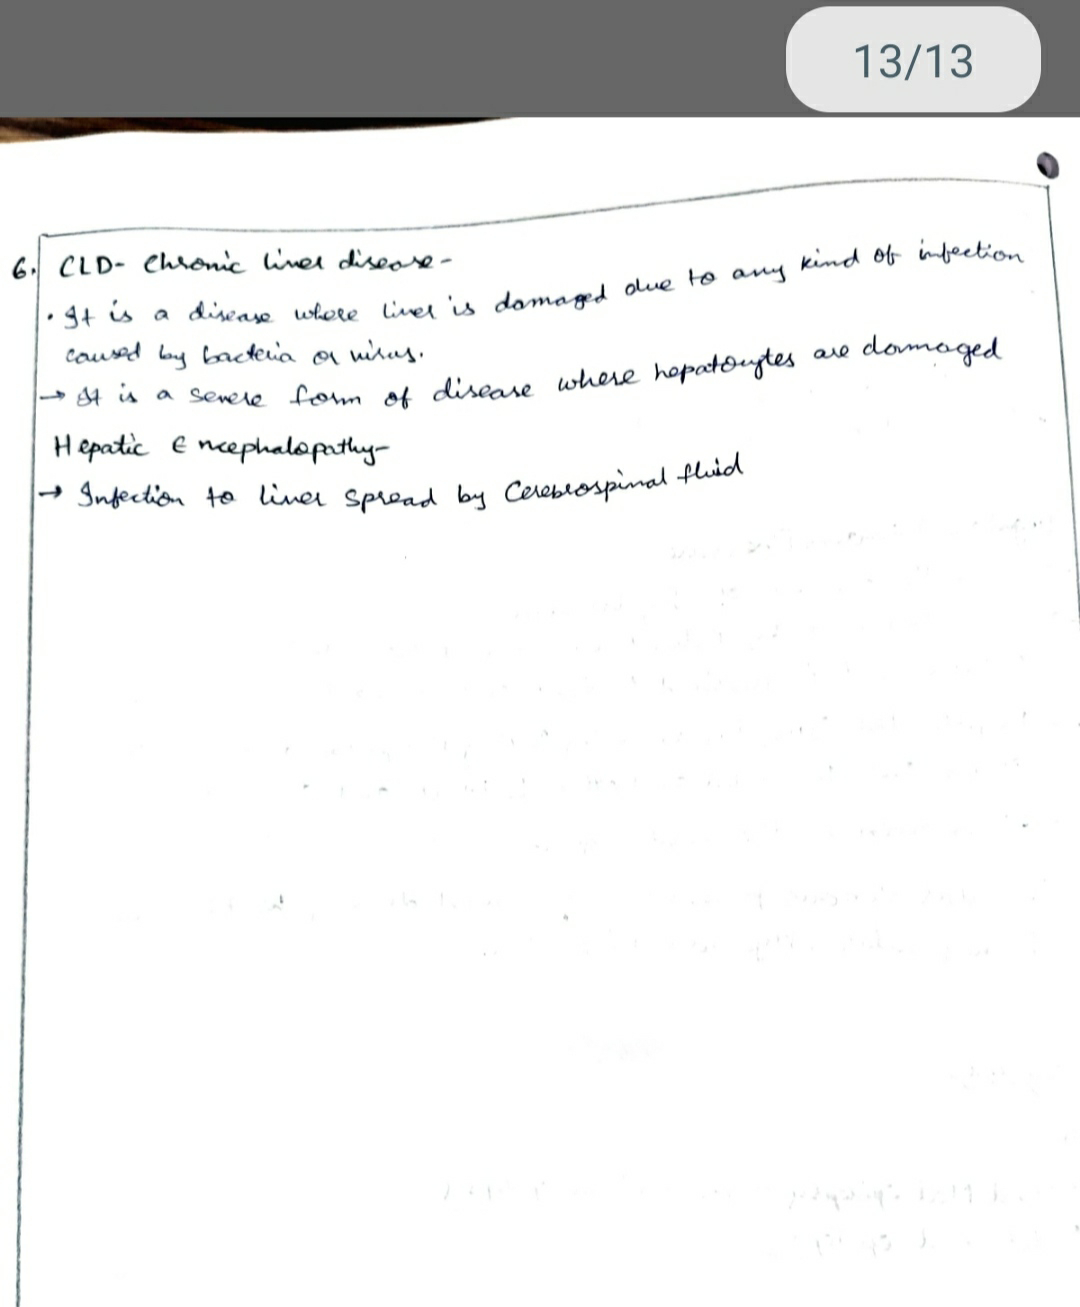 13/13
6. CLD- Chronic liver disease-
• It is a disease where liver is damaged due to any kind of infection
caused by bacteria or virus.
→ It is a severe form of disease where hepatocytes are damaged
Hepatic Encephalopathy-
→ Infection to liver spread by Cerebrospinal fluid